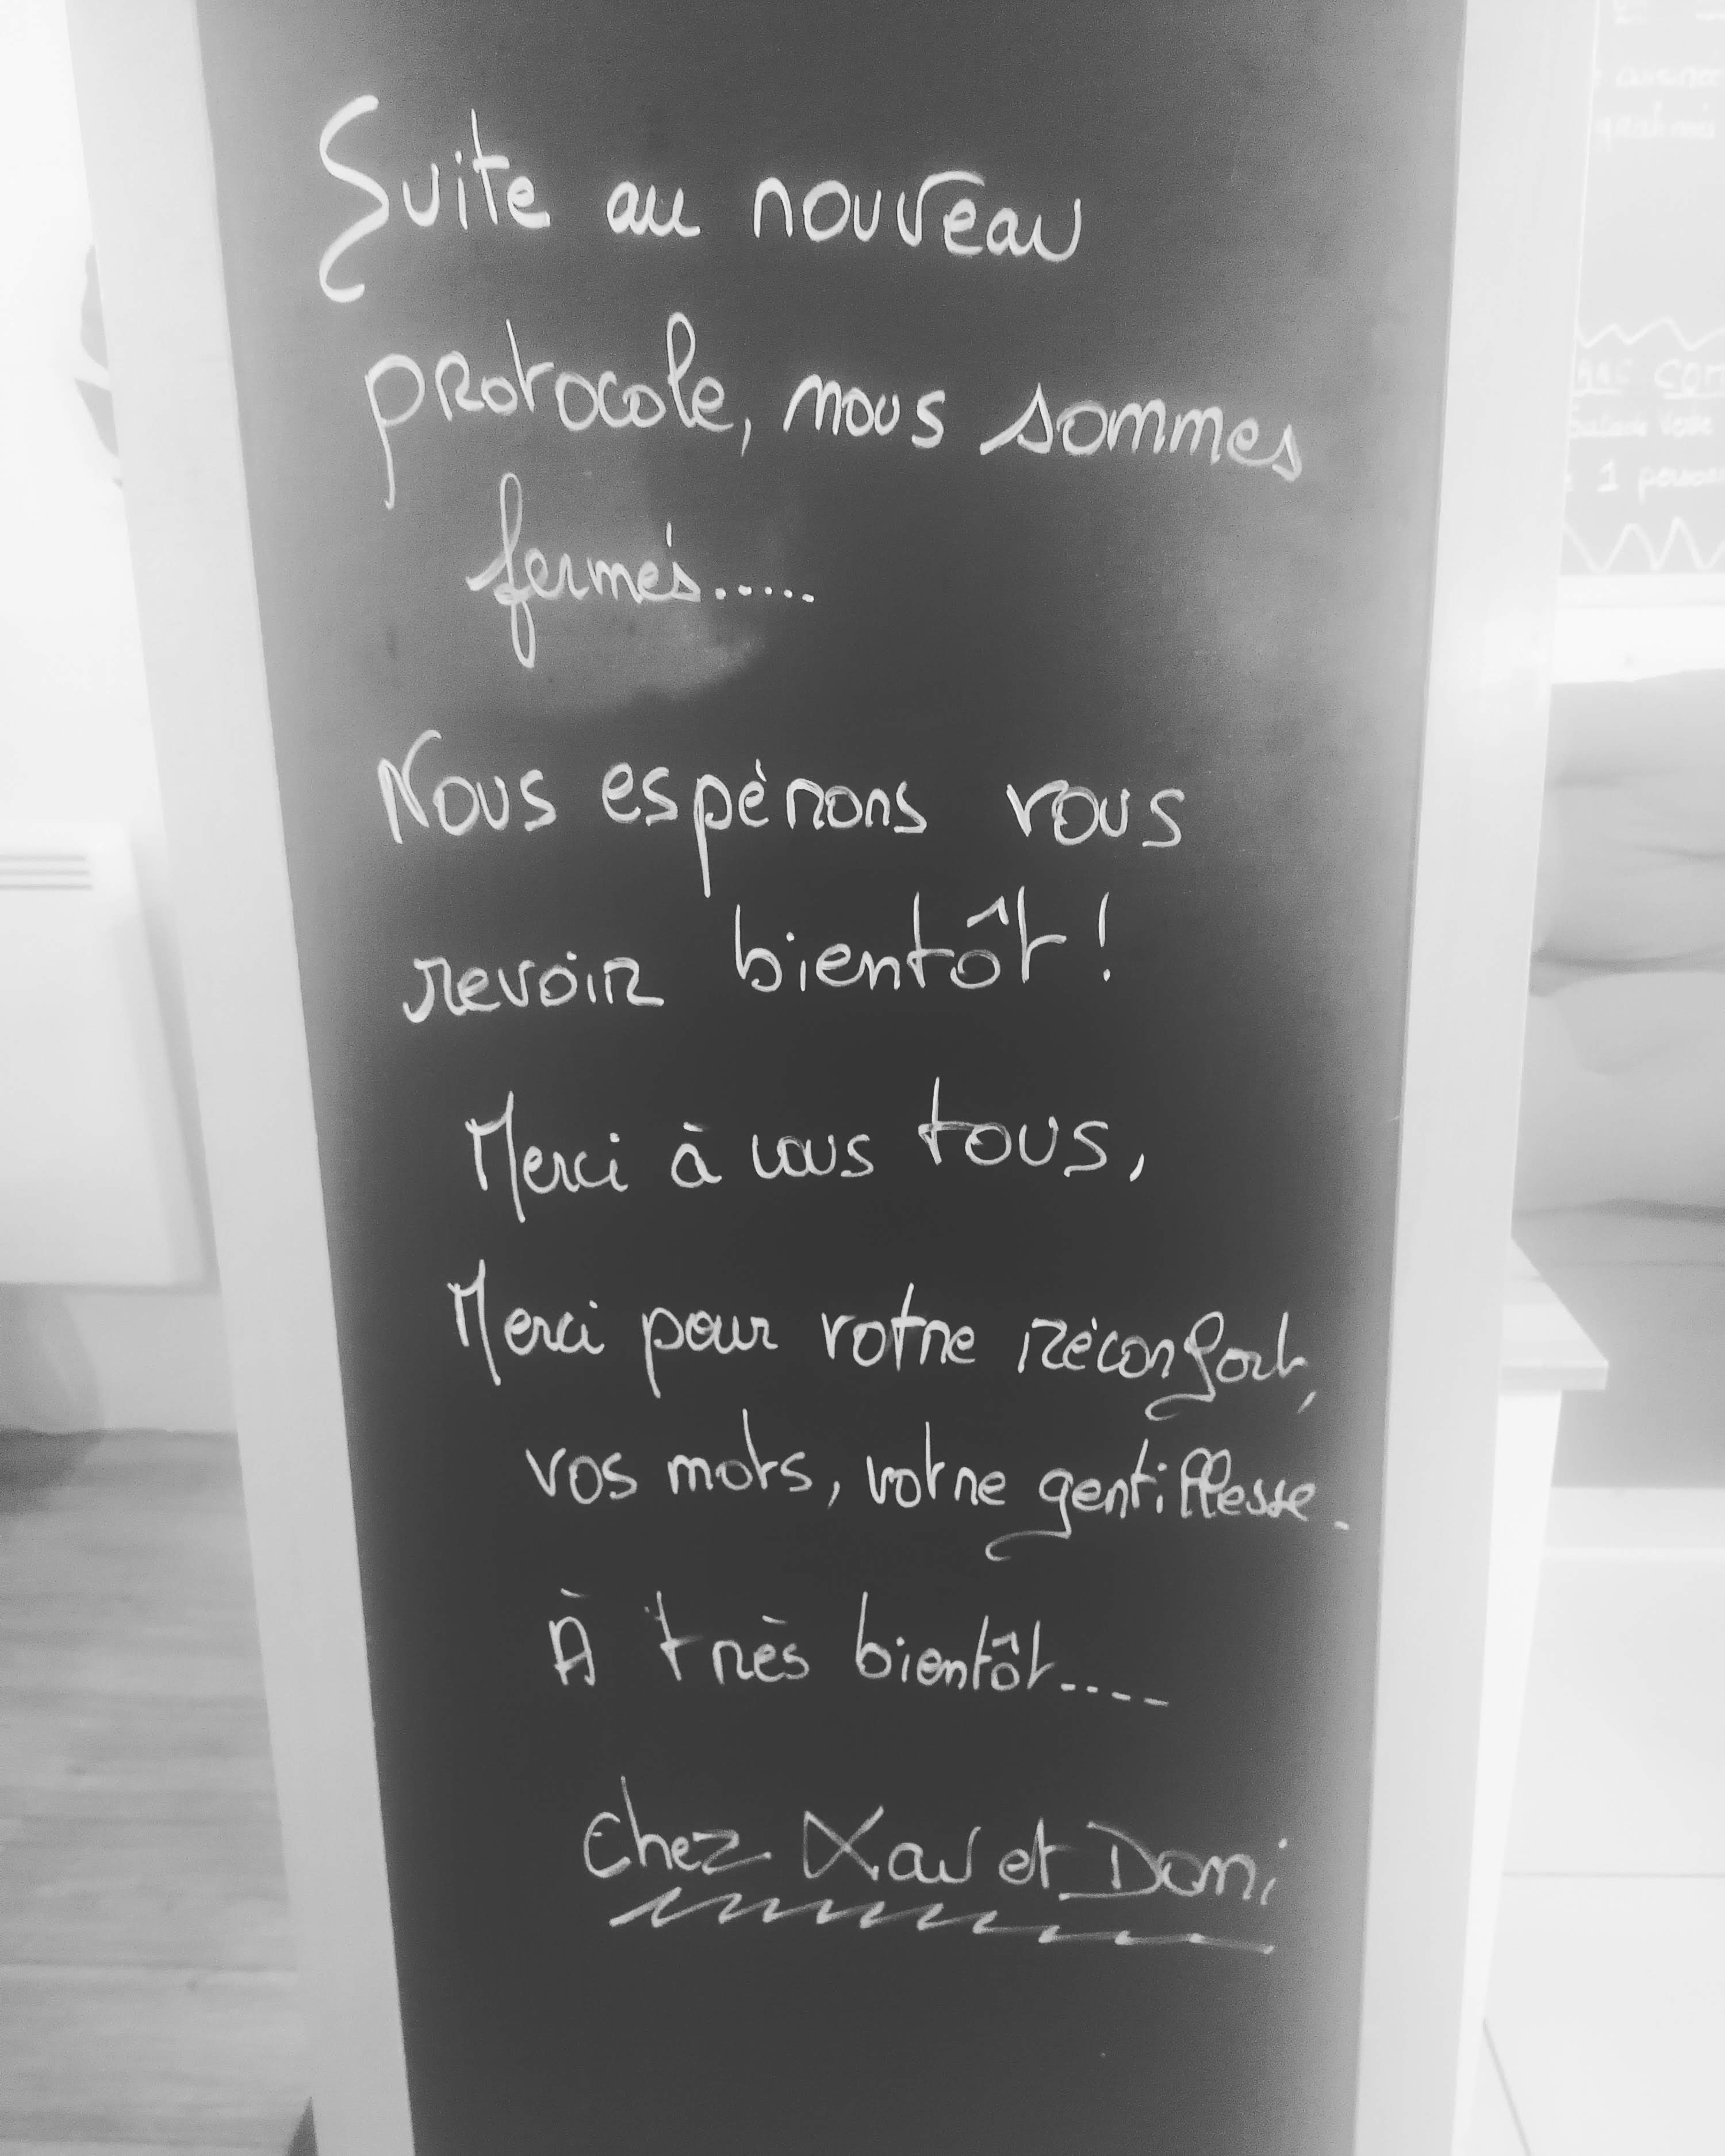 Suite au nouveau
protocole, nous sommes
fermés.....
Nous espérons vous
revoir bientôt !
Merci à vous tous,
Merci pour votre réconfort,
vos mots, votre gentillesse.
À très bientôt....
Chez Xav et Domi
salade verte
1 poisson